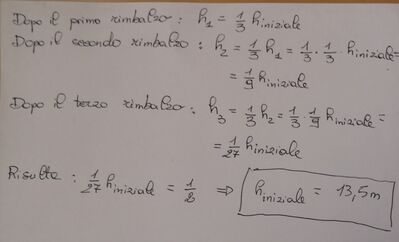 Dopo il primo rimbalzo : h₁ = 1/3 h iniziale
Dopo il secondo rimbalzo : h₂ = 1/3 h₁ = 1/3 · 1/3 · h iniziale =
= 1/9 h iniziale
Dopo il terzo rimbalzo : h₃ = 1/3 h₂ = 1/3 · 1/9 h iniziale =
= 1/27 h iniziale
Risulta : 1/27 h iniziale = 1/2 ⇒ h iniziale = 13,5 m